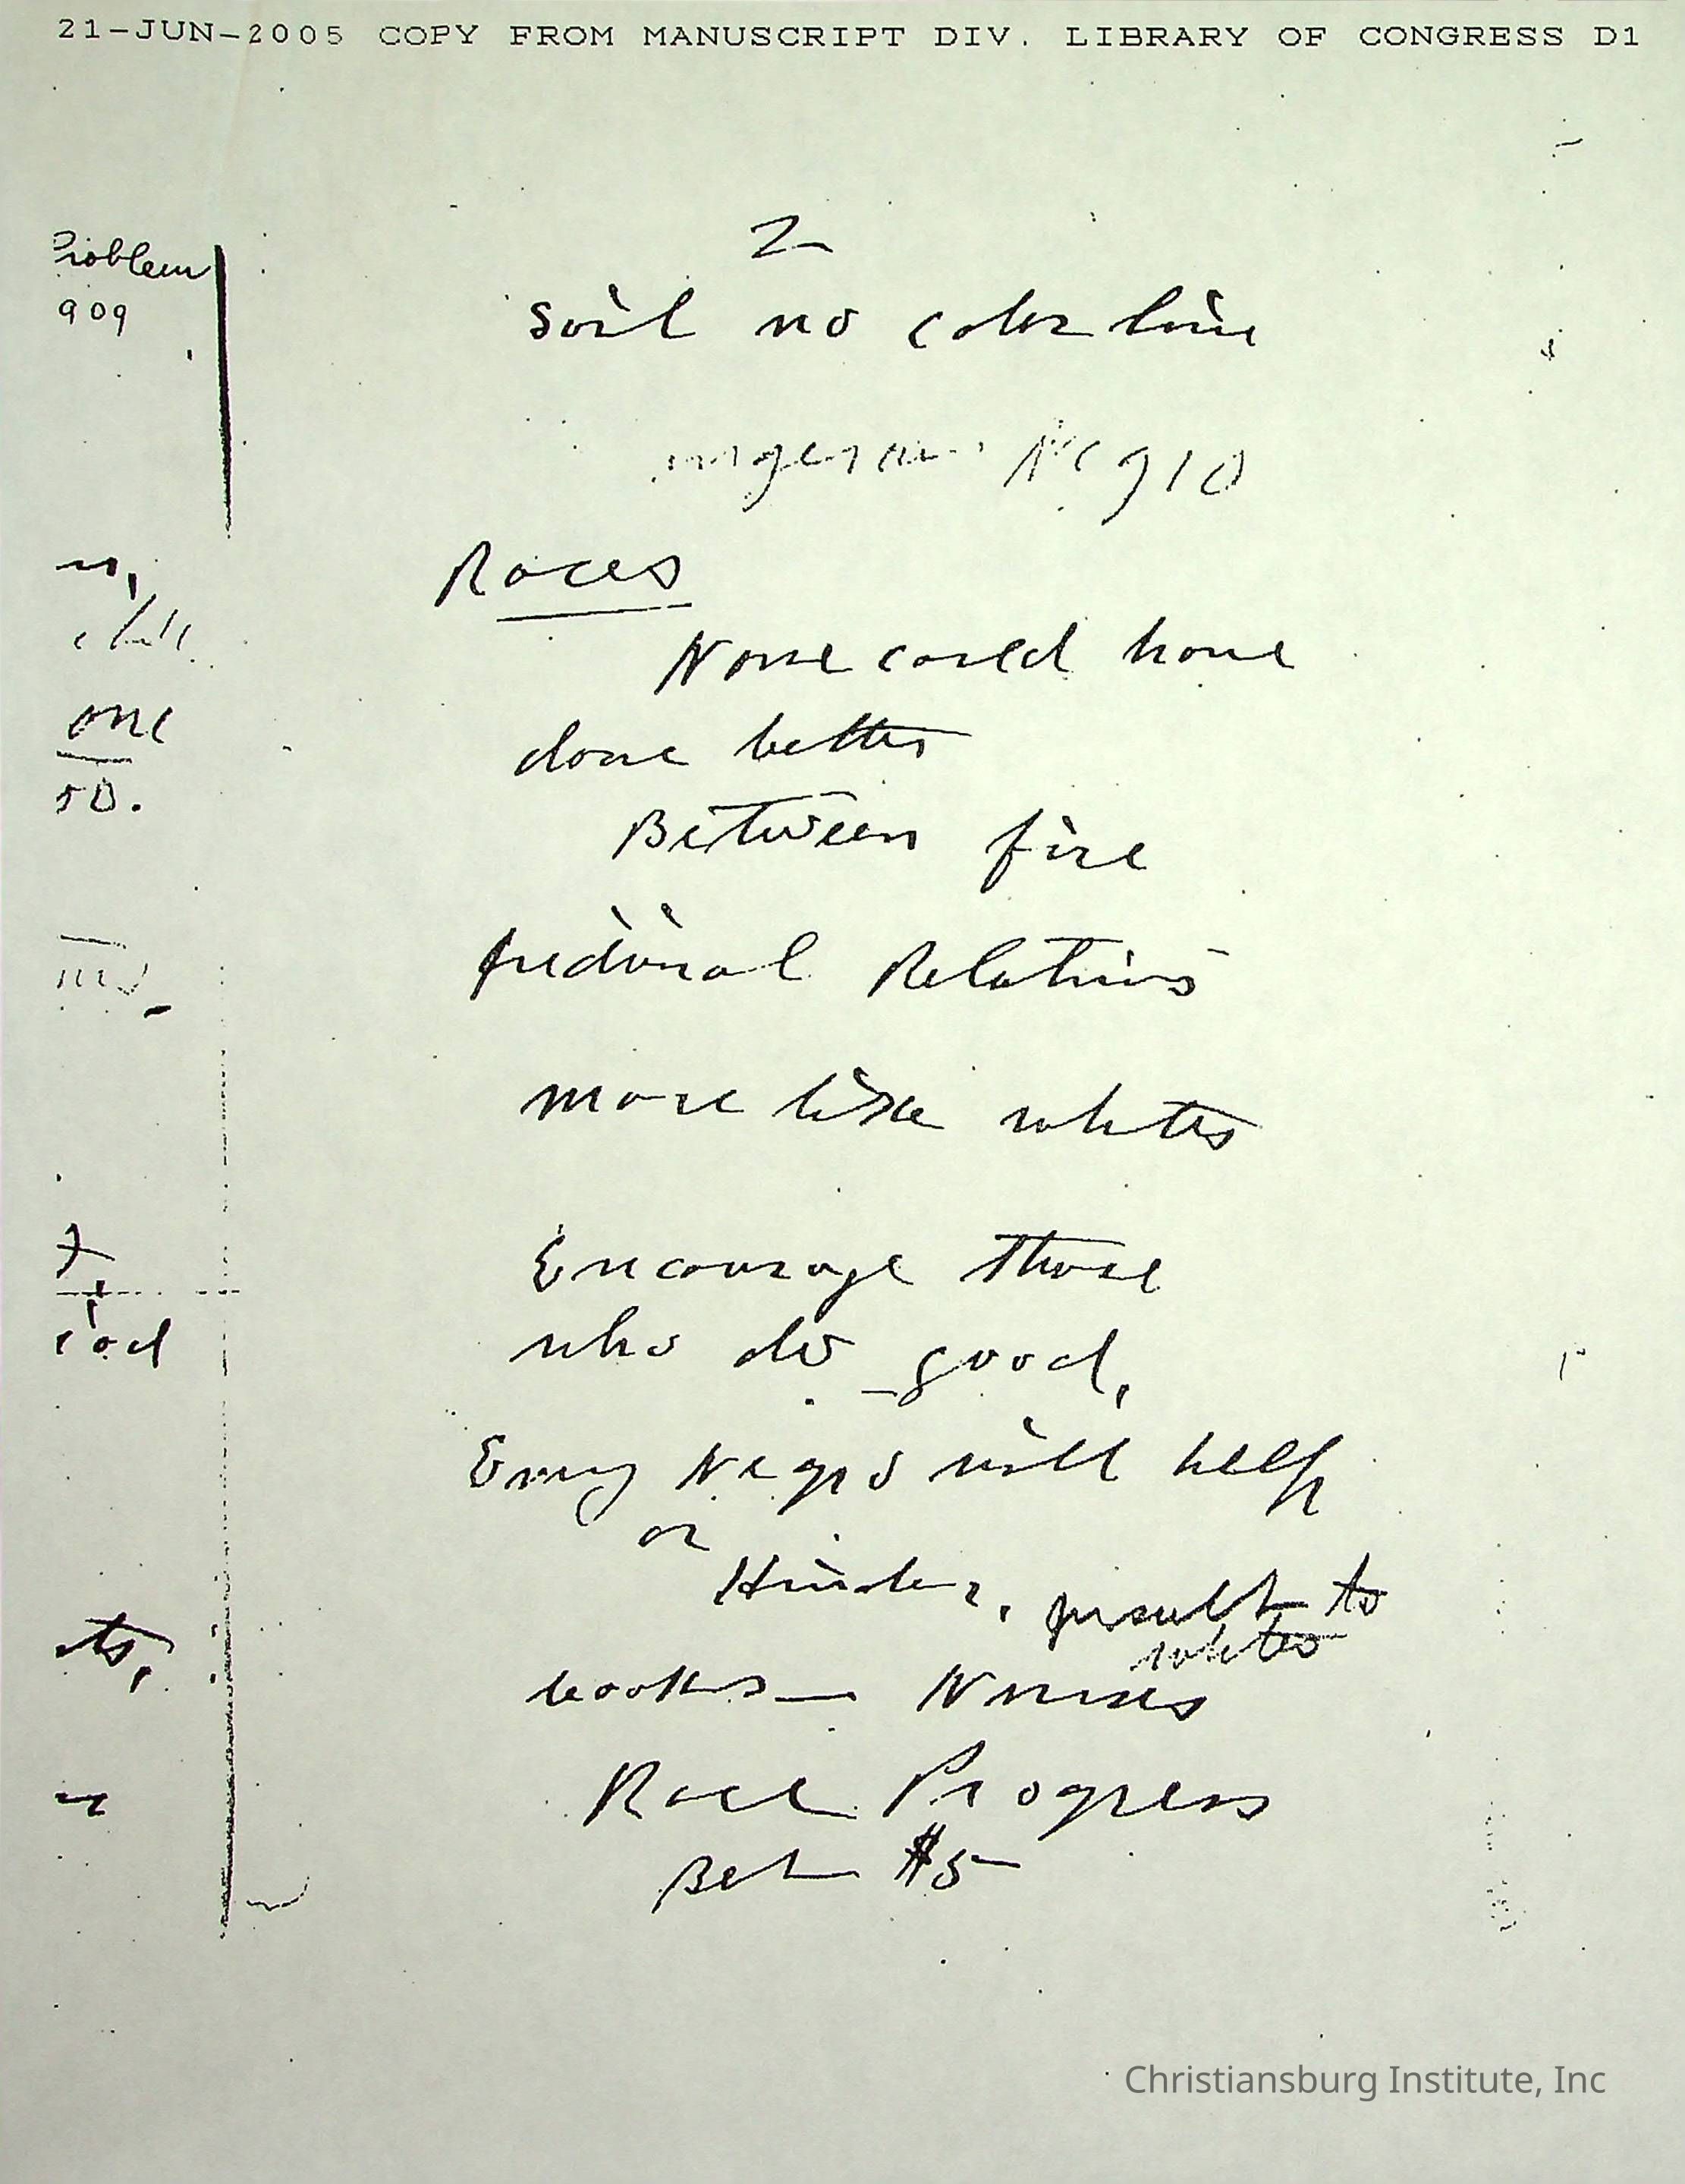 21-JUN-2005 COPY FROM MANUSCRIPT DIV. LIBRARY OF CONGRESS D1
Problem
909
2
Soil no color line
Races
None could have
done better
Between fire
Relations
more like whites
one
50.
Encourage those
who do good,
Every Negro will help
or
Hinder, result to
whites
books — Nurses
Race Progress
Bet $5
Christiansburg Institute, Inc